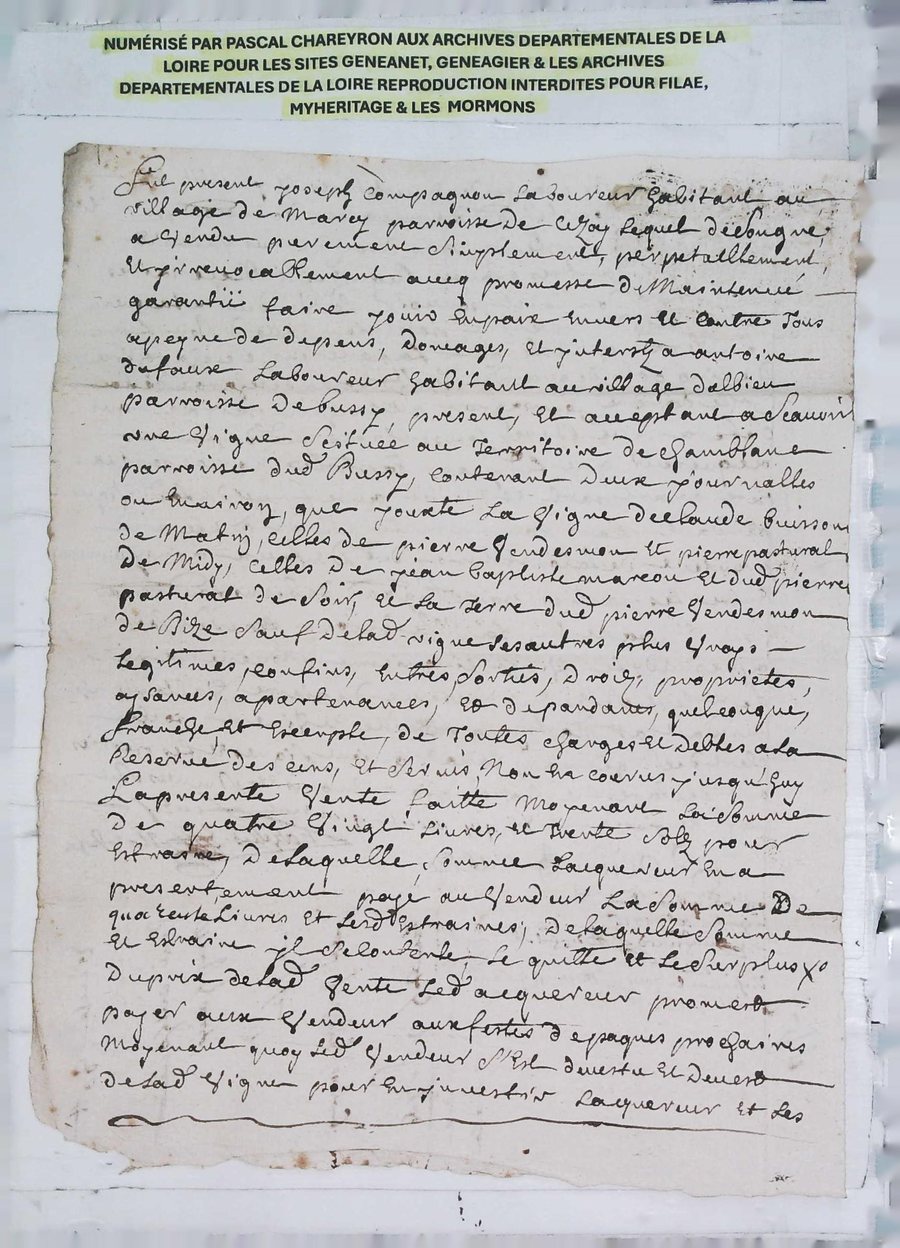 NUMÉRISÉ PAR PASCAL CHAREYRON AUX ARCHIVES DEPARTEMENTALES DE LA
LOIRE POUR LES SITES GENEANET, GENEAGIER & LES ARCHIVES
DEPARTEMENTALES DE LA LOIRE REPRODUCTION INTERDITES POUR FILAE,
MYHERITAGE & LES MORMONS
Fut present joseph Compagnon Laboureur habitant au
village de Marcy parroisse De Cezay Lequel de son gre,
a Vendu purement Simplement, perpetuellement,
Et yrrevocallement avecq promesse de Maintenue
garantië faire jouir En paix Envers Et Contre Tous
a peyne de depens, Domages, Et ynterestz a antoine
dufaux Laboureur habitant au village dalbieu
parroisse De bussy, present, Et acceptant a Scavoir
vne Vigne Scituée au Territoire de Chamblane
parroisse dud Bussy, Contenant Deux journallés
ou Environ, que jouxte La Vigne de claude buisson
de Matin, Celles de pierre Vendesmon Et pierre pastural
De Midy, Celles De jean baptiste marcou Et dud pierre
pastural de Soir, Et La Terre dud pierre Vendesmon
de Bize Sauf De lad vigne Ses autres plus Vrays
Legitimes, confins, Entrés, Sorties, Droitz, proprietés,
aysances, apartenances, Et dependances, quelconque,
franche, Et Exempte, de Toutes charges Et Debtes a La
Reserve Des cens, Et Servis Non Encourus jusqu'huy
La presente Vente faitte Moyenant La Somme
De quatre Vingt Livres, Et Trente Solz pour
Estraine, De Laquelle Somme Lacquereur En a
presentement payé au Vendeur La Somme De
quarente Livres Et Lesd Estraines, De Laquelle Somme
Et Estraine jl Se Contente, Le quitte Et Le Surplus
Du prix de Lad Vente Led acquereur promest
payer aux Vendeur aux festes de paques prochaines
Moyenant quoy Led Vendeur S'Est devestu Et Devest
de Lad Vigne pour En jnvestir Lacquereur Et Les